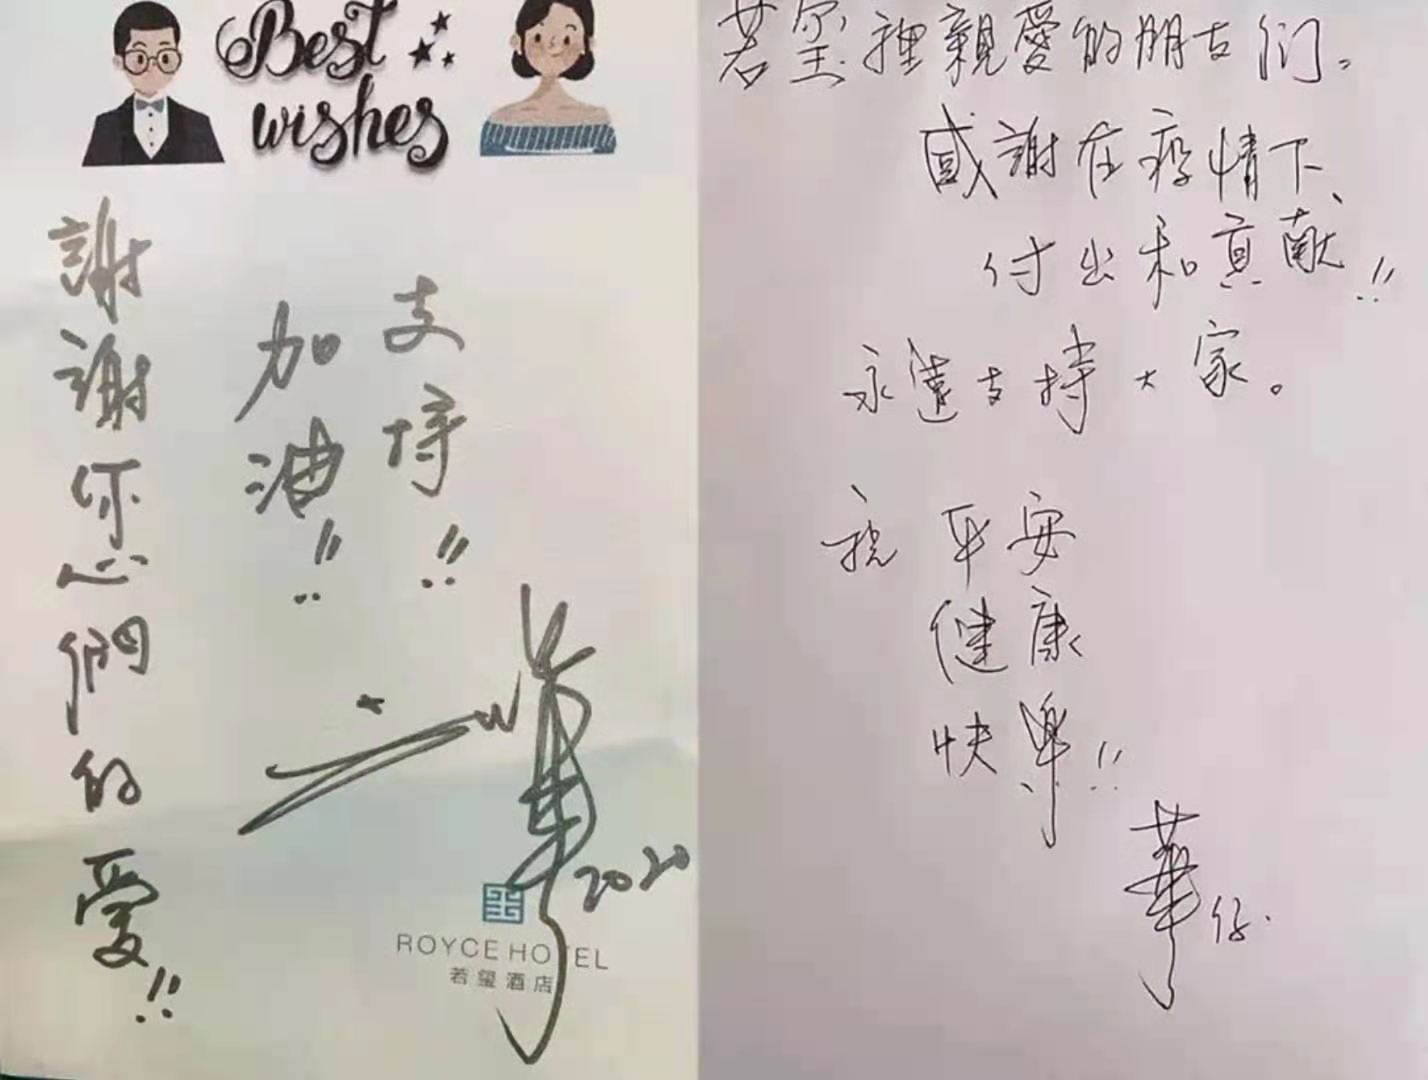 Best
wishes
謝謝您們的愛!!
加油!!
支持!!
華 2020
ROYCE HOTEL
若玺酒店
若玺裡親愛的朋友们。
感謝在疫情下、
付出和貢献!!
永遠支持大家。
祝 平安
健康
快樂!!
華仔.